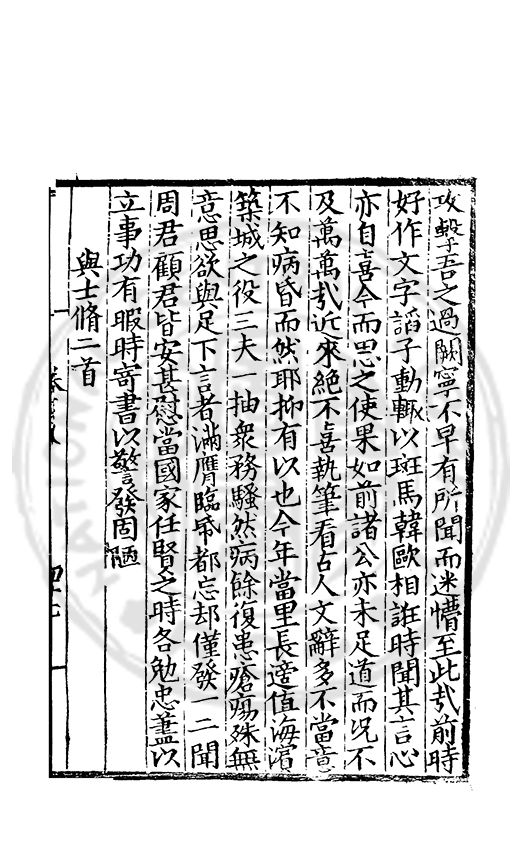 攻擊吾之過闕寧不早有所聞而迷懵至此㢤前時
好作文字謟子動輒以班馬韓歐相誑時聞其言心
亦自喜今而思之使果如前諸公亦未足道而况不
及萬萬㢤近來絕不喜執筆看古人文辭多不當意
不知病昏而然耶抑有以也今年當里長適值海濵
築城之役三夫一抽衆務騷然病餘復患瘡瘍殊無
意思欲與足下言者滿膺臨帋都忘却僅發一二聞
周君顧君皆安甚慰當國家任賢之時各勉忠藎以
立事功有暇時寄書以警發固陋
與士脩二首